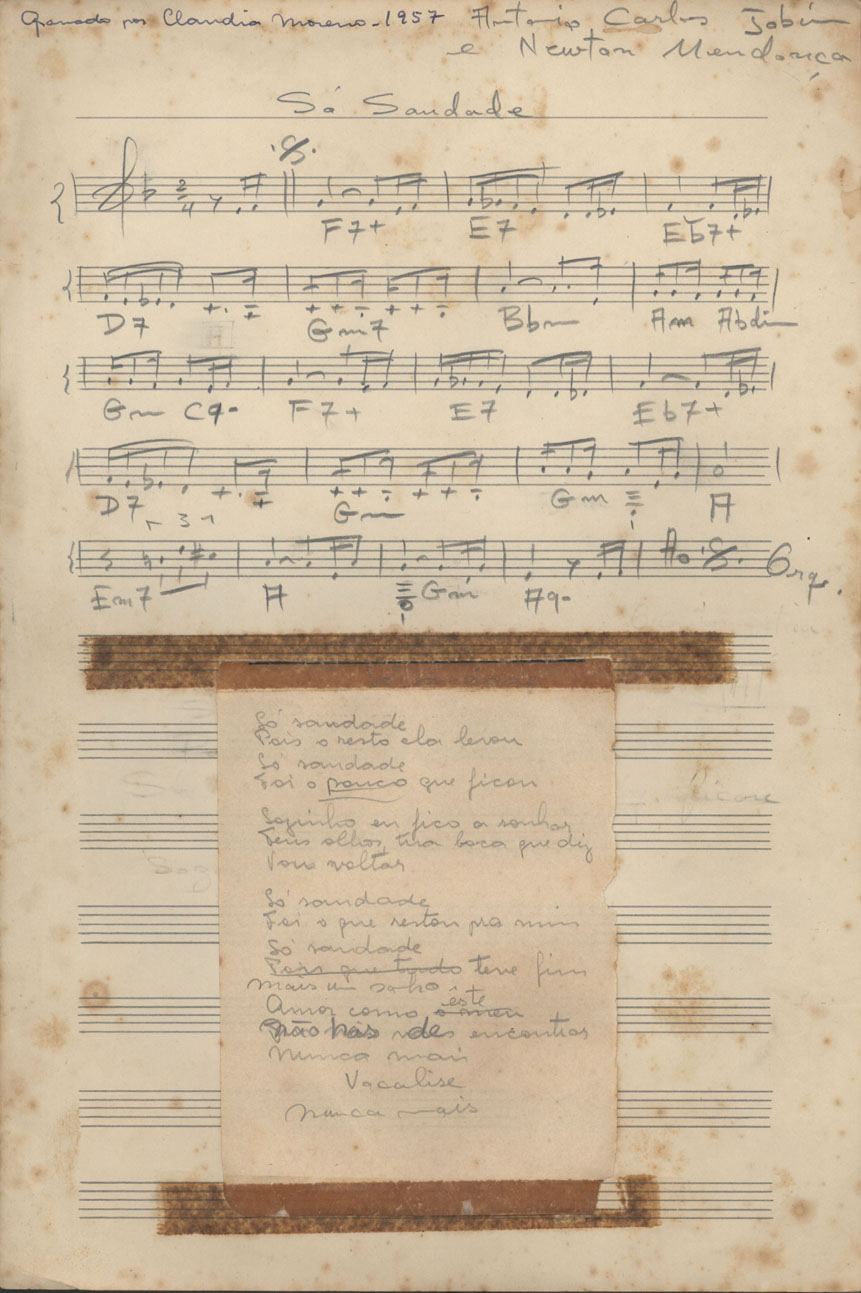 Gravado por Claudia Moreno - 1957
Antonio Carlos Jobim
e Newton Mendonça
Só Saudade
2/4
F7+ E7 Eb7+
D7 Gm7 Bbm Am Abdim
Gm C9- F7+ E7 Eb7+
D7 Gm Gm A
3
Ao Orq.
Em7 A Gm A9-
Só saudade
Pois o resto ela levou
Só saudade
Foi o pouco que ficou
Sozinho eu fico a sonhar
Teus olhos, tua boca que diz
Vou voltar
Só saudade
Foi o que restou pra mim
Só saudade
Pois que tudo teve fim
Mais um sonho
este
Amor como o meu
Não hás de encontrar
Nunca mais
Vocalise
Nunca mais